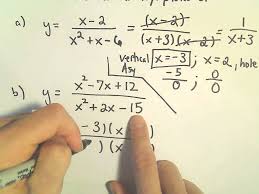 a) y = x-2 / x²+x-6 = (x-2) / (x+3)(x-2) = 1 / x+3
vertical Asy x = -3 ; x = 2, hole
-5/0 ; 0/0
b) y = x²-7x+12 / x²+2x-15
-3)(x
)(x